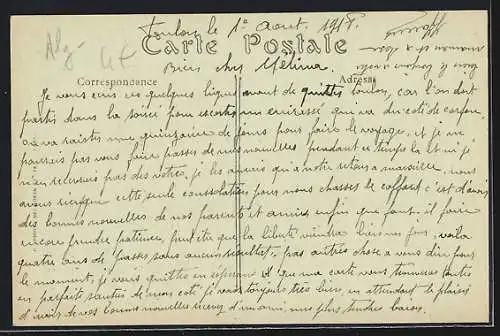 Toulon le 1º Août 1918.
Carte Postale
Bien cher Mélina
Correspondance
Adresse
Je vous écris ces quelques lignes avant de quitter Toulon, car l'on doit
partir dans la soirée pour escorter un cuirassé qui va du coté de Corfou,
on va rester une quinzaine de jours pour faire le voyage, et je ne
pourrais pas vous faire passer de mes nouvelles pendant ce temps là et si je
n'en recevais pas des votres, je les aurais qu'a notre retour a marseille, nous
avons que cette seule consolation pour nous chasser le caffard c'est d'avoir
des bonnes nouvelles de nos parents et amis, enfin que faut-il faire
encore prendre patience, peut être que la liberté viendra bien un jour, voila
quatre ans de passés, sans aucun résultat, pas autres chose a vous dire pour
le moment, je vous quitte en espérant que ma carte vous trouvera toutes
en parfaite santé de mon coté je vais toujours très bien, en attendant le plaisir
d'avoir de vos bonnes nouvelles recevez d'un ami, mes plus tendre baisers.